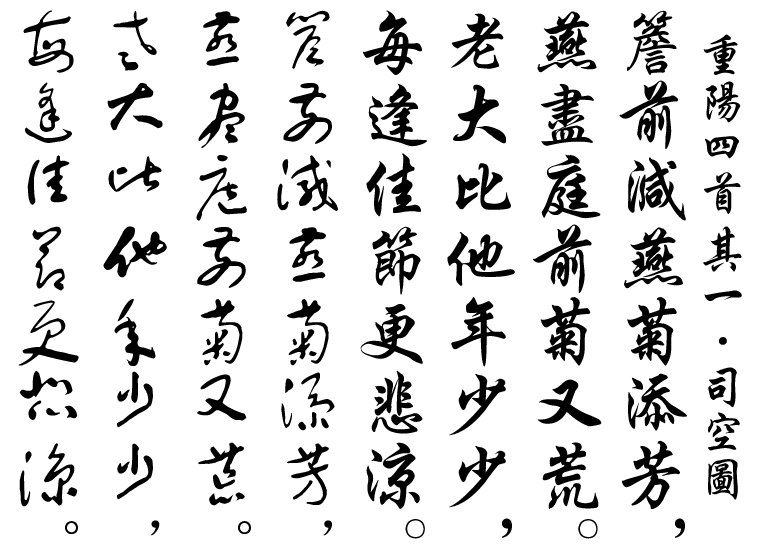 重陽四首其一・司空圖
簷前減燕菊添芳，
燕盡庭前菊又荒。
老大比他年少少，
每逢佳節更悲涼。
簷前減燕菊添芳，
燕盡庭前菊又荒。
老大比他年少少，
每逢佳節更悲涼。